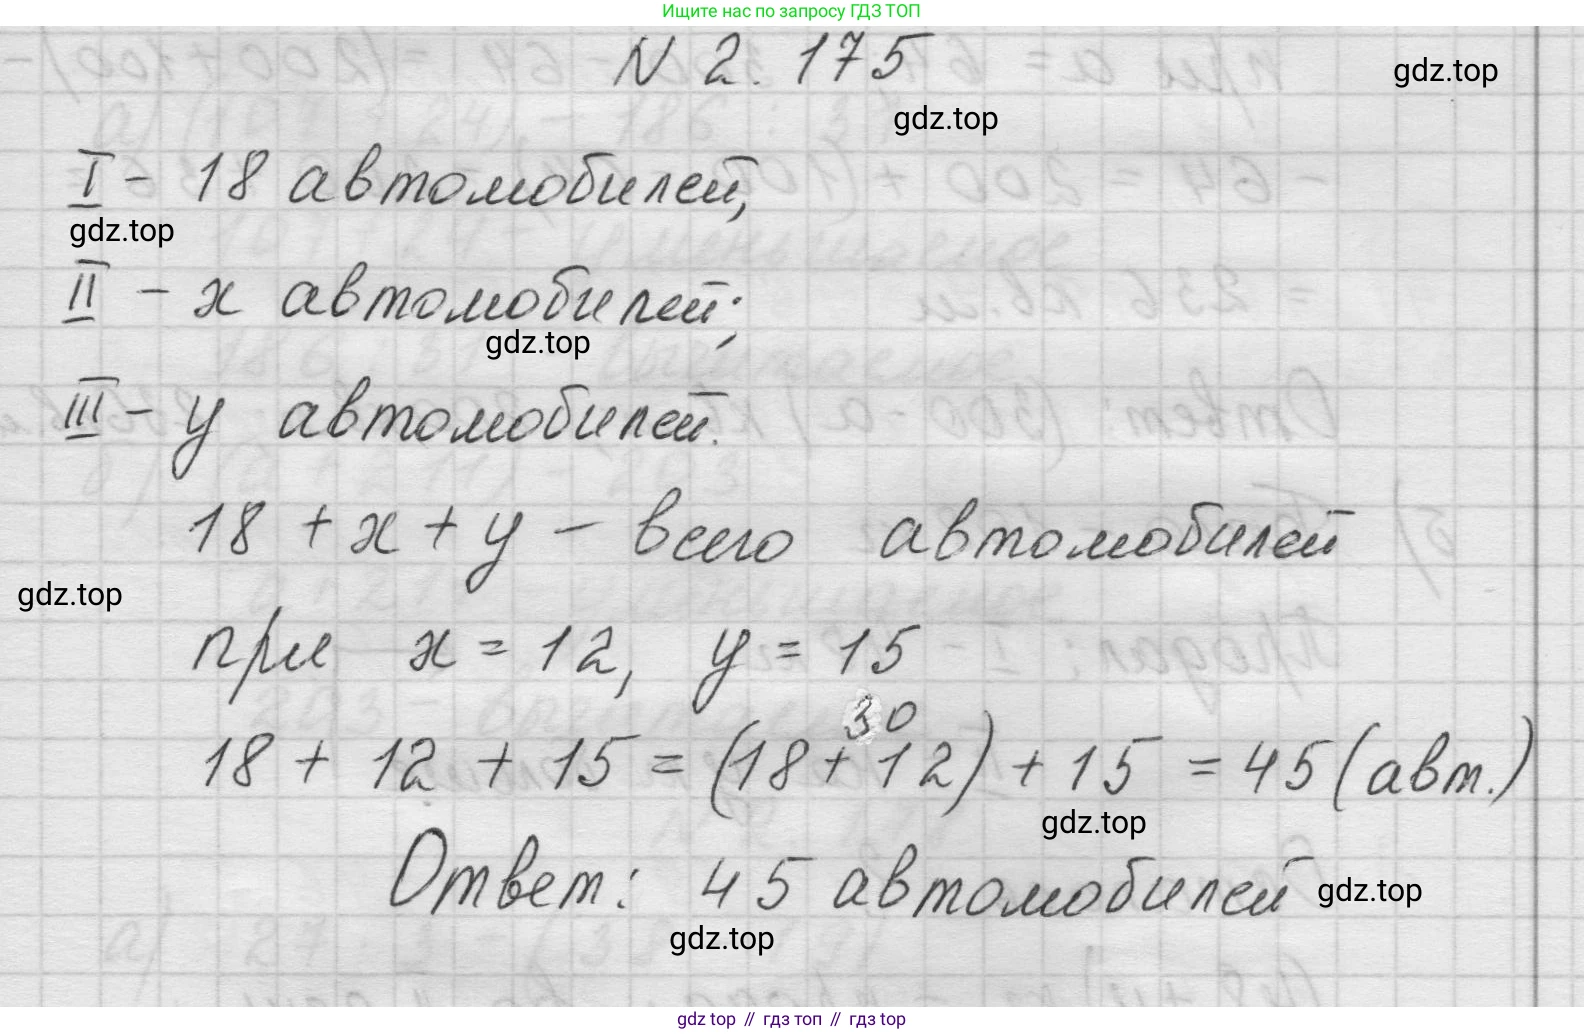 Ищите нас по запросу ГДЗ ТОП
N 2. 175
gdz.top
gdz.top
I - 18 автомобилей,
gdz.top
II - x автомобилей;
gdz.top
III - y автомобилей.
18 + x + y - всего автомобилей
gdz.top
при x = 12, y = 15
30
18 + 12 + 15 = (18 + 12) + 15 = 45 (авт.)
gdz.top
Ответ: 45 автомобилей
gdz.top
gdz.top
gdz top // гдз топ // гдз top